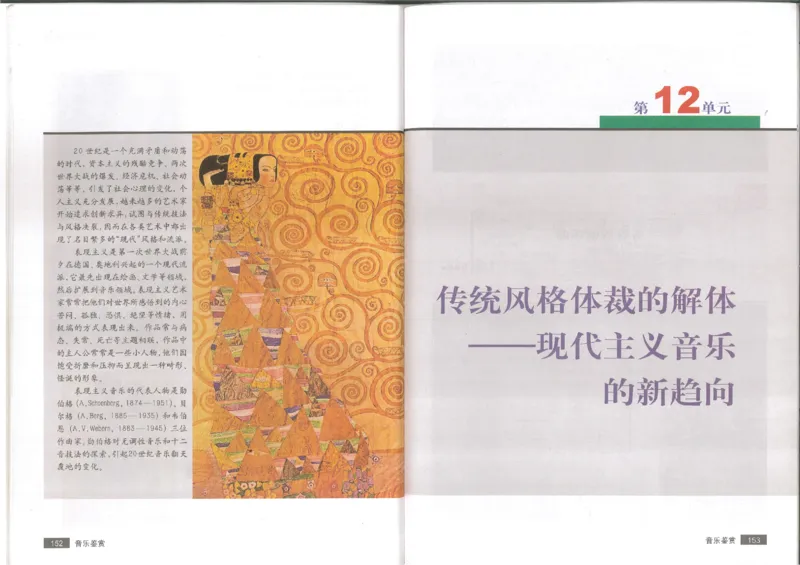 20世纪是一个充满矛盾和动荡
的时代。资本主义的残酷竞争、两次
世界大战的爆发、经济危机、社会动
荡等等，引发了社会心理的变化。个
人主义充分发展，越来越多的艺术家
开始追求创新求异，试图与传统技法
与风格决裂，因而在各类艺术中都出
现了名目繁多的“现代”风格和流派。
表现主义是第一次世界大战前
夕在德国、奥地利兴起的一个现代流
派，它最先出现在绘画、文学等领域，
然后扩展到音乐领域。表现主义艺术
家常常把他们对世界所感悟到的内心
苦闷、孤独、恐惧、绝望等情绪，用
极端的方式表现出来。作品常与病
态、失常、死亡等主题相联，作品中
的主人公常常是一些小人物，他们因
饱受折磨和压抑而呈现出一种畸形、
怪诞的形象。
表现主义音乐的代表人物是勋
伯格（A.Schoenberg，1874—1951）、贝
尔格（A.Berg，1885—1935）和韦伯
恩（A.V.Webern，1883—1945）三位
作曲家。勋伯格对无调性音乐和十二
音技法的探索，引起20世纪音乐翻天
覆地的变化。
152 音乐鉴赏
第12单元
传统风格体裁的解体
——现代主义音乐
的新趋向
音乐鉴赏 153